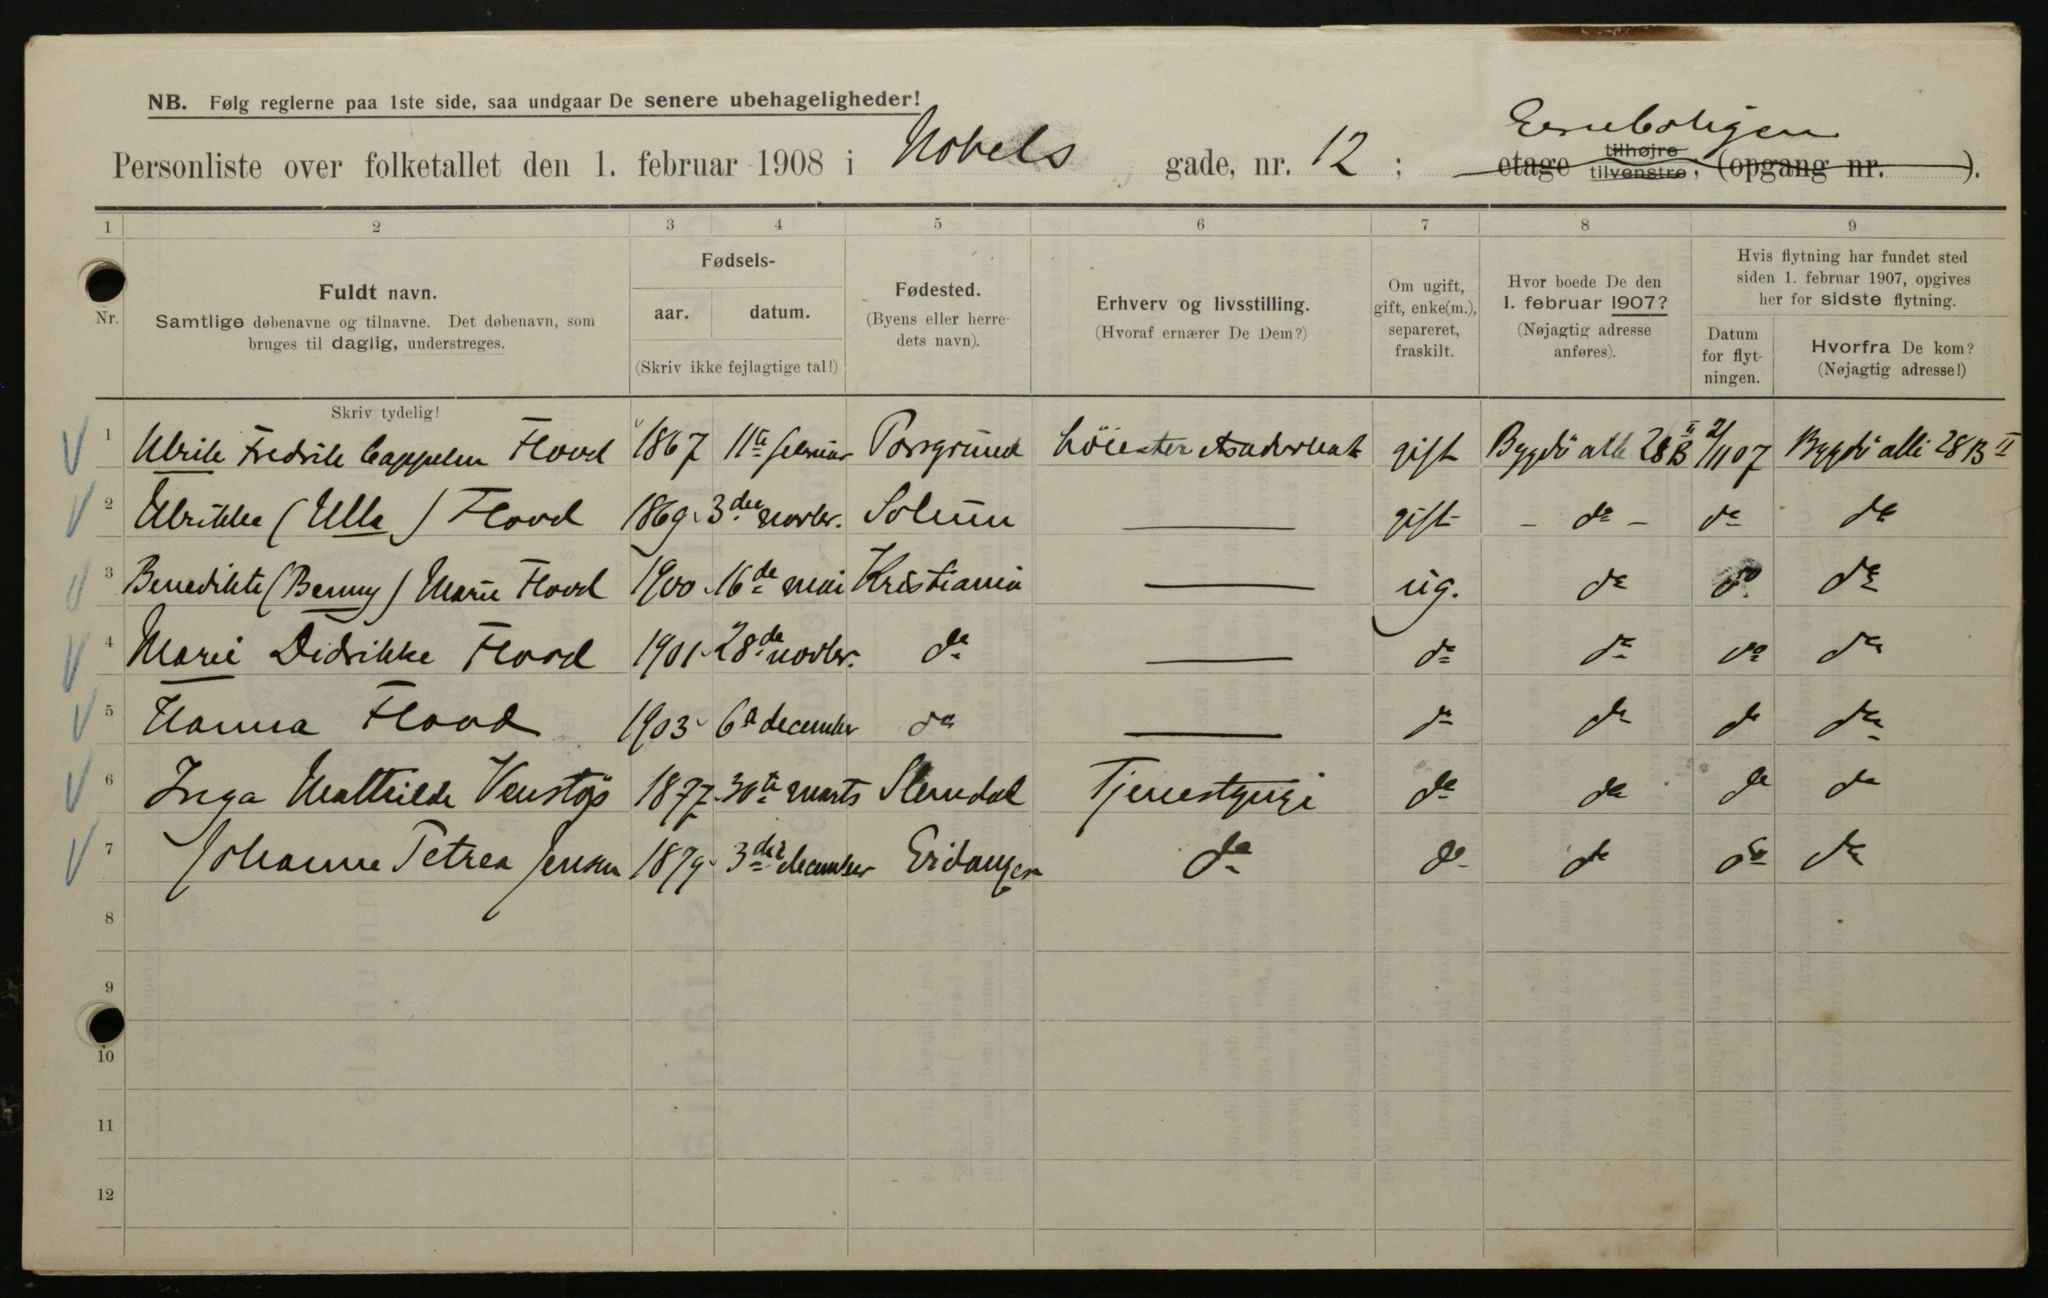 NB. Følg reglerne paa 1ste side, saa undgaar De senere ubehageligheder!
Personliste over folketallet den 1. februar 1908 i Nobels gade, nr. 12 ; etage tilhøjre tilvenstre; (opgang nr. ).
1 2 3 4 5 6 7 8 9
Nr.
Fuldt navn.
Samtlige døbenavne og tilnavne. Det døbenavn, som
bruges til daglig, understreges.
Fødsels-
aar. datum.
(Skriv ikke fejlagtige tal!)
Fødested.
(Byens eller herre-
dets navn).
Erhverv og livsstilling.
(Hvoraf ernærer De Dem?)
Om ugift,
gift, enke(m.),
separeret,
fraskilt.
Hvor boede De den
1. februar 1907?
(Nøjagtig adresse
anføres).
Hvis flytning har fundet sted
siden 1. februar 1907, opgives
her for sidste flytning.
Datum
for flyt-
ningen.
Hvorfra De kom?
(Nøjagtig adresse!)
Skriv tydelig!
1 Ulrik Fredrik Cappelen Flood 1867 11te februar Porsgrund gift Bygdö alle 28 B II 2/11 07 Bygdö alle 28 B II
2 Ulrikke (Ulla) Flood 1869 3die novbr. Solum — gift - do - do do
3 Benedikte (Benny) Marie Flood 1900 16de mai Kristiania — ug. do do do
4 Marie Didrikke Flood 1901 28de novbr. do — do do do do
5 Hanna Flood 1903 6te december do — do do do do
6 Inga Mathilde Venstøp 1877 30te marts Slemdal Tjenestpige do do do do
7 Johanne Petrea Jensen 1879 3die december Eidanger do do do do do
8
9
10
11
12